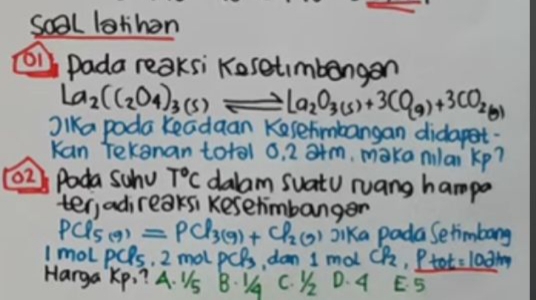 Soal latihan
01 pada reaksi Kesetimbangan
La2(C2O4)3(s) ⇌ La2O3(s) + 3CO(g) + 3CO2(g)
Jika pada Keadaan Kesetimbangan didapat-
kan Tekanan total 0,2 atm, maka nilai Kp?
02 Pada suhu T°C dalam suatu ruang hampa
terjadi reaksi kesetimbangan
PCl5(g) = PCl3(g) + Cl2(g) Jika pada Setimbang
1 mol PCl5, 2 mol PCl3, dan 1 mol Cl2, Ptot = 10 atm
Harga Kp,? A. 1/5 B. 1/4 C. 1/2 D. 4 E. 5